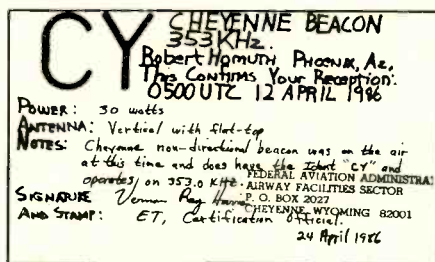 CY
CHEYENNE BEACON
353 KHz.
Robert Homuth Phoenix, Az,
This Confirms Your Reception:
0500 UTC 12 APRIL 1986
POWER: 30 watts
ANTENNA: Vertical with flat-top
NOTES: Cheyenne non-directional beacon was on the air
at this time and does have the Ident "CY" and
operates on 353.0 KHz.
FEDERAL AVIATION ADMINISTRA
AIRWAY FACILITIES SECTOR
P. O. BOX 2027
CHEYENNE, WYOMING 82001
SIGNATURE Vernon Ray
AND STAMP: ET, Certification Official.
24 April 1986